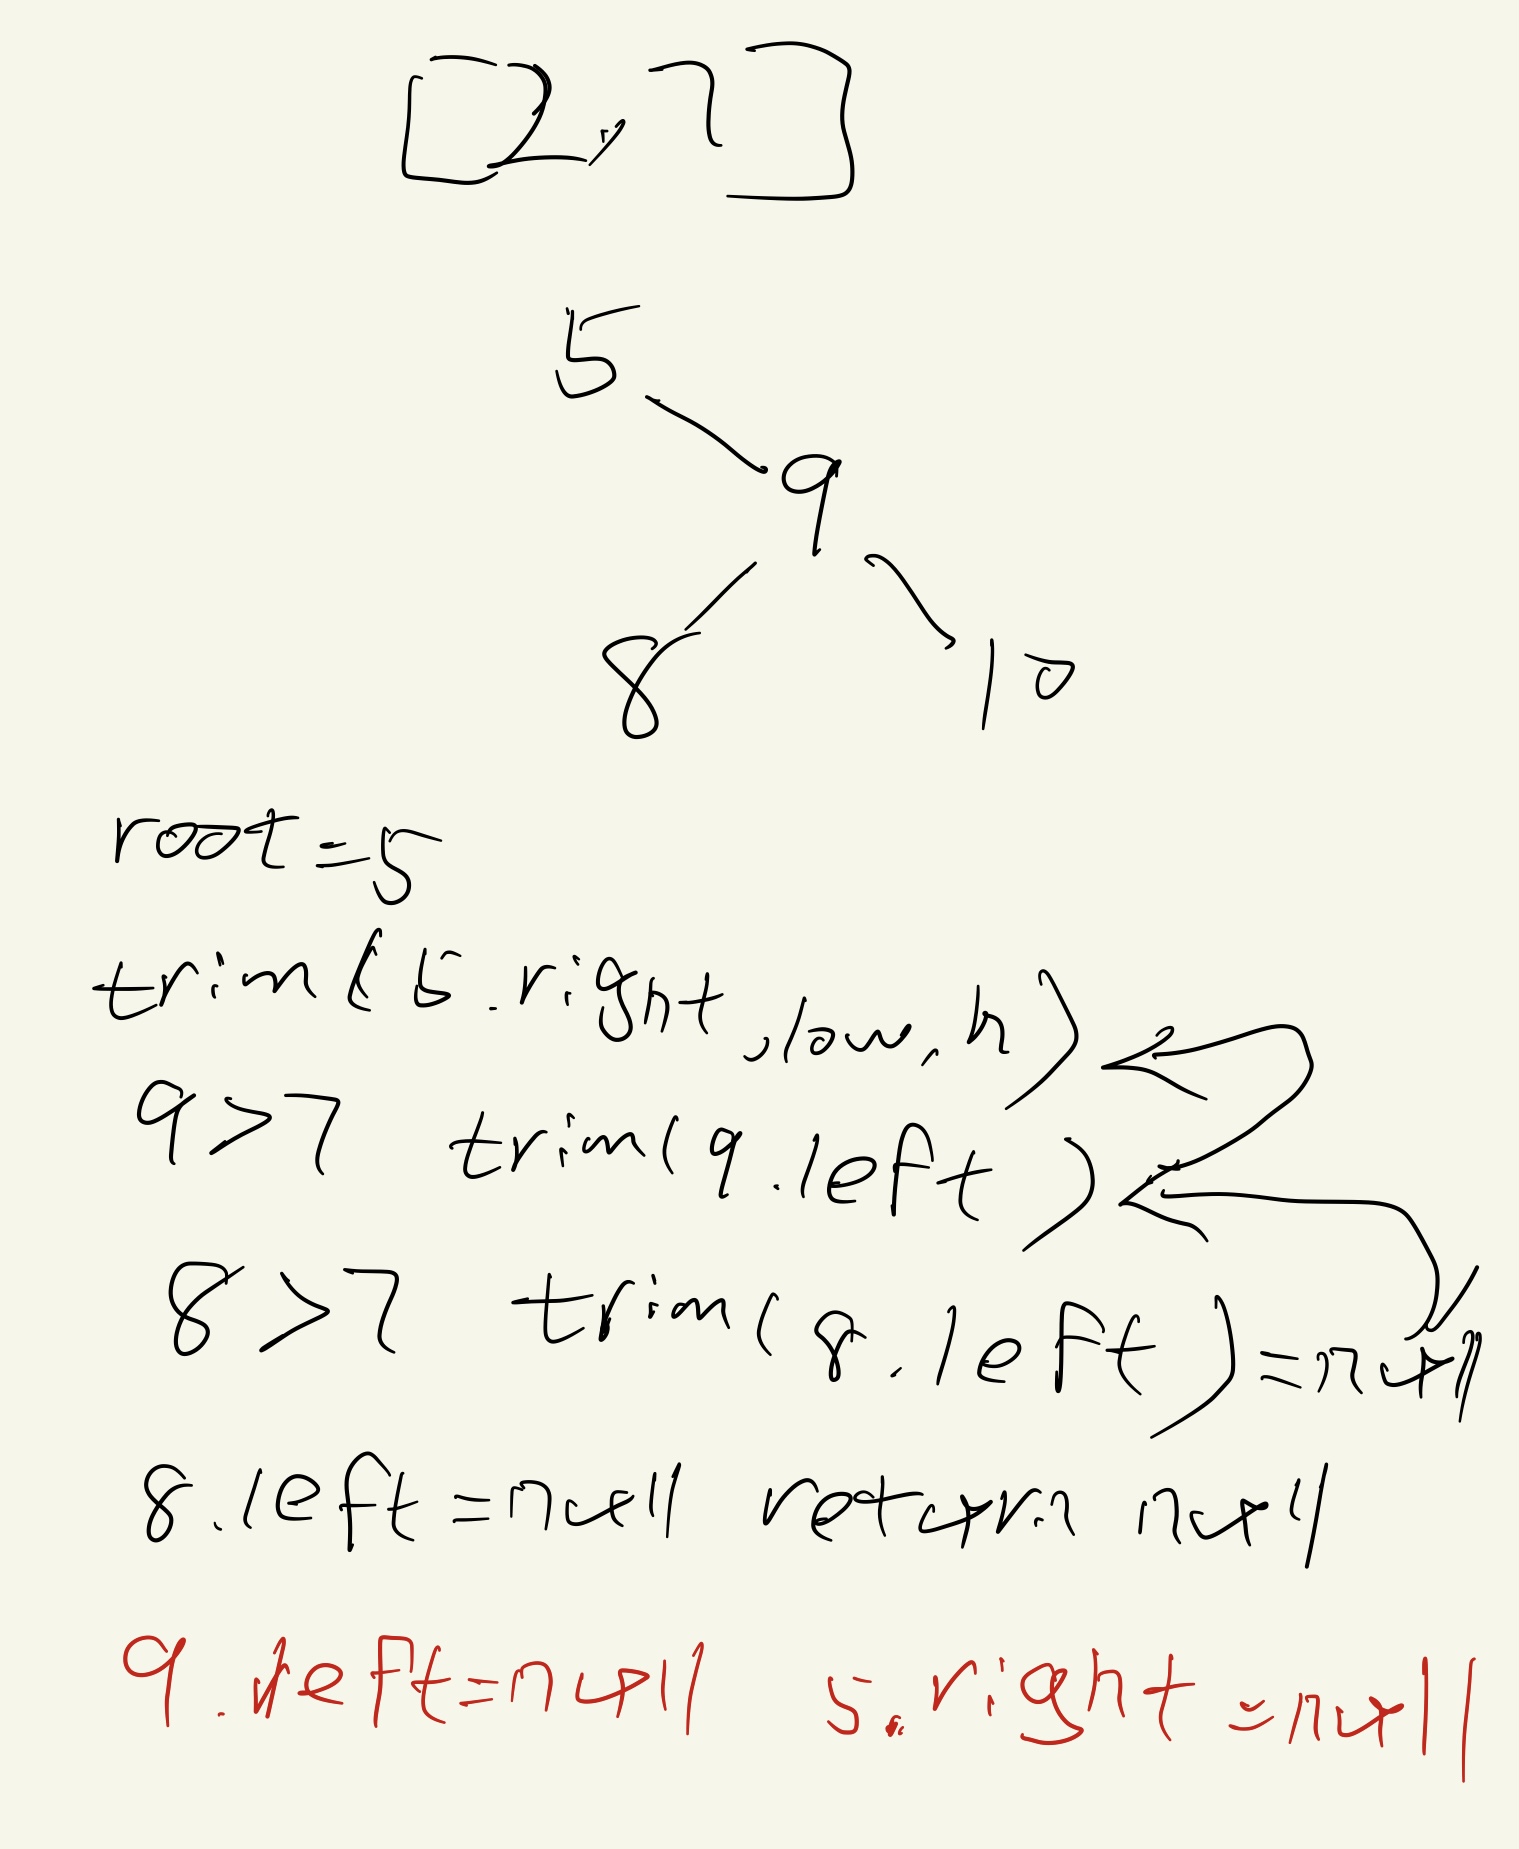 [2,7]
5
9
8 10
root=5
trim(5.right,low,h)
9>7 trim(9.left)
8>7 trim(8.left)=null
8.left=null return null
9.left=null 5.right=null